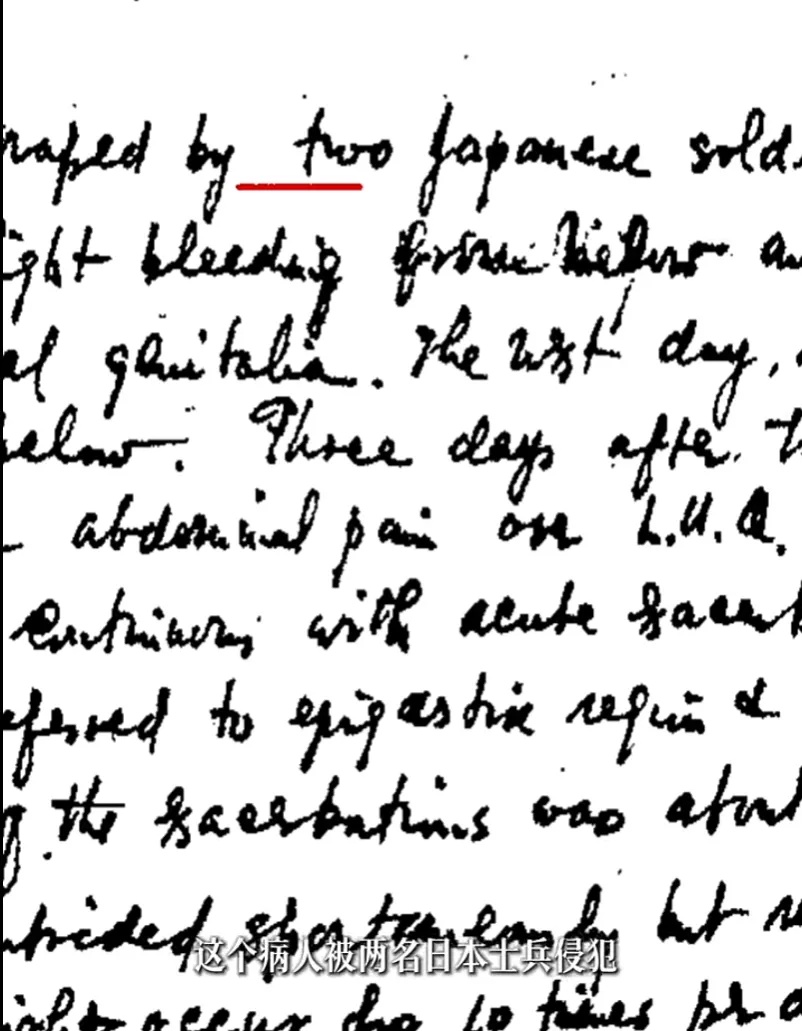 raped by two Japanese sold
ight bleeding from below a
al genitalia. The next day,
below. Three days after. t
- abdominal pain on L.U.Q.
continuous with acute exacerb
eferred to epigastric region &
g the exacerbations was about
ubsided spontaneously but
occur 10 times
这个病人被两名日本士兵侵犯